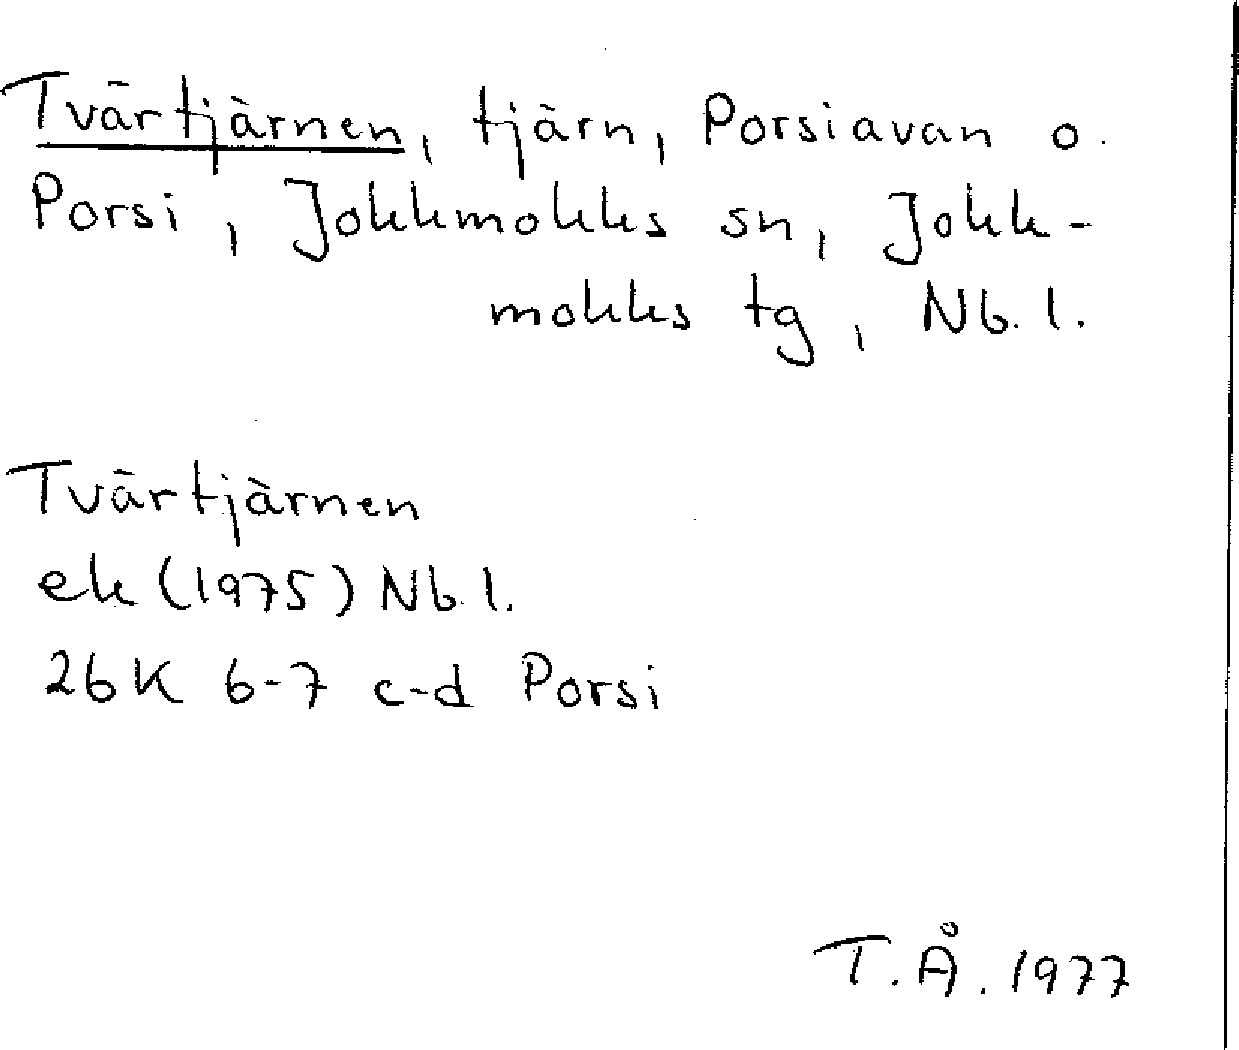 Tvärtjärnen, tjärn, Porsiavan o.
Porsi, Jokkmokks sn, Jokk-
mokks tg, Nb. l.
Tvärtjärnen
ek (1975) Nb. l.
26K 6-7 c-d Porsi
T. Å. 1977